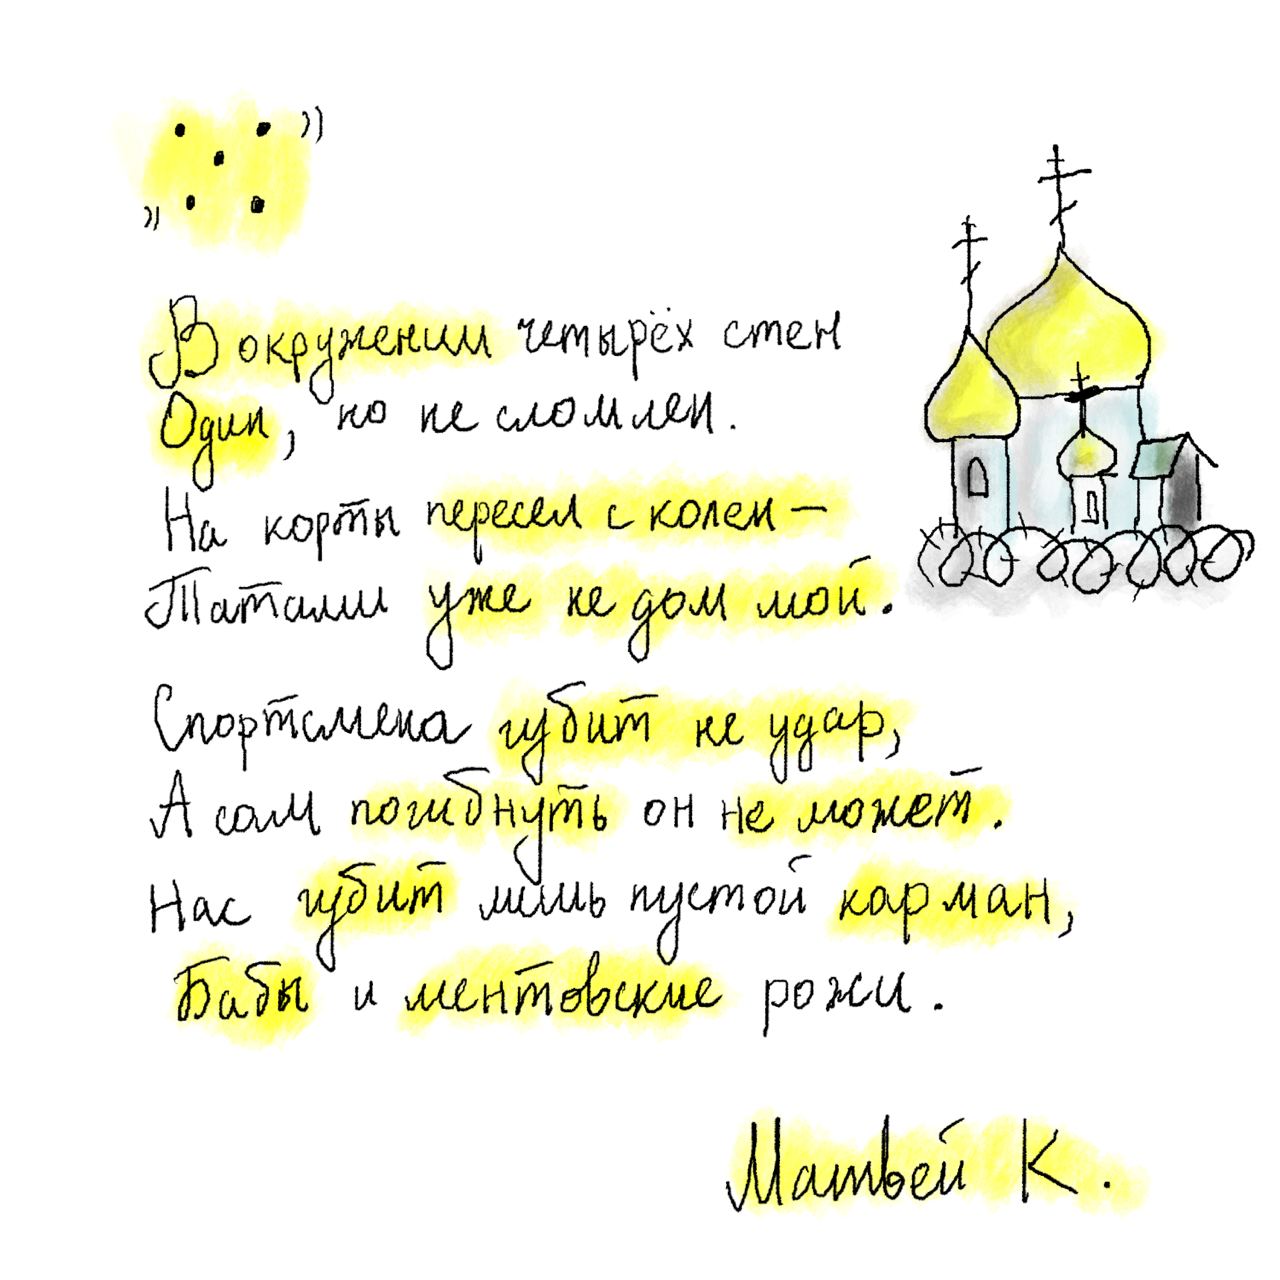 В окружении четырёх стен
Один, но не сломлен.
На корты пересел с колен —
Татами уже не дом мой.
Спортсмена губит не удар,
А сам погибнуть он не может.
Нас губит лишь пустой карман,
Бабы и ментовские рожи.
Матвей К.